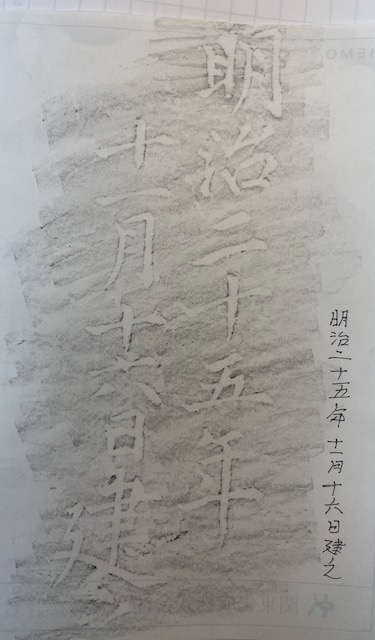 明治二十五年十一月十六日建之
明治二十五年
十一月十六日建之
MEMO